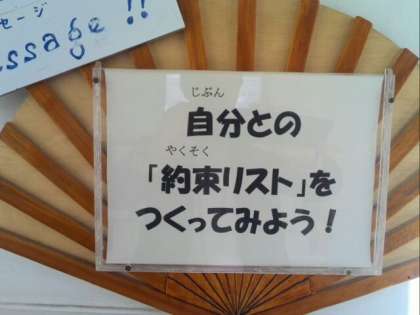 セージ
ssage!!
じぶん
自分との
やくそく
「約束リスト」を
つくってみよう!